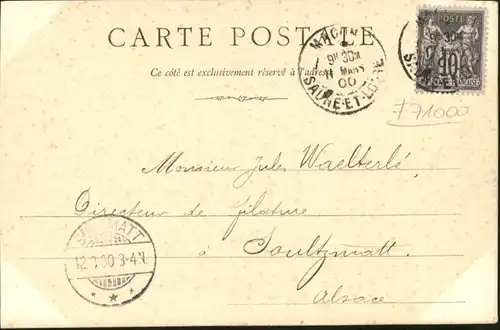 CARTE POSTALE
Ce côté est exclusivement réservé à l'adresse
MACON
9H 30M
11 MARS
00
SAONE-ET-LOIRE
POSTE
10
F71000
Monsieur Jules Waelterlé
Directeur de filature
à Soultzmatt
Alsace
12.3.00 3-4N.